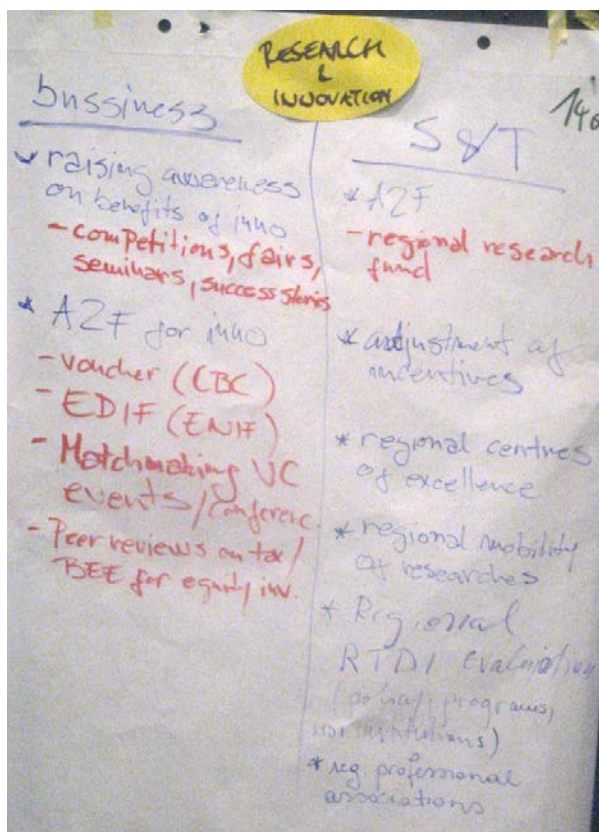 RESEARCH
&
INNOVATION
bussiness
raising awareness
on benefits of inno
- competitions, fairs,
seminars, success stories
* A2F for inno
- voucher (CBC)
- EDIF (ENIF)
- Matchmaking VC
events/conferenc.
- Peer reviews on tax/
BEE for equity inv.
S&T
* A2F
- regional research
fund
* adjustment of
incentives
* regional centres
of excellence
* regional mobility
of researches
* Regional
RTDI evaluation
(policy, programs,
institutions)
* reg. professional
associations